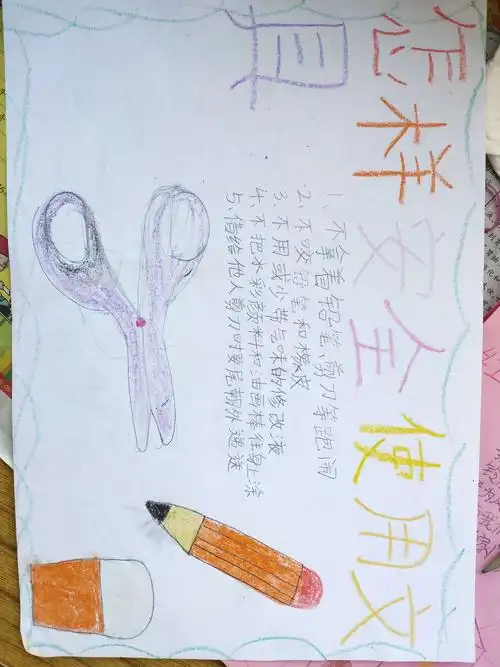 怎样安全使用文
具
1、不拿着铅笔、剪刀等跑闹
2、不咬铅笔和橡皮
3、不用或少带气味的修改液
4、不把水彩颜料和油画棒往身上涂
5、借给他人剪刀时要尾朝外递送